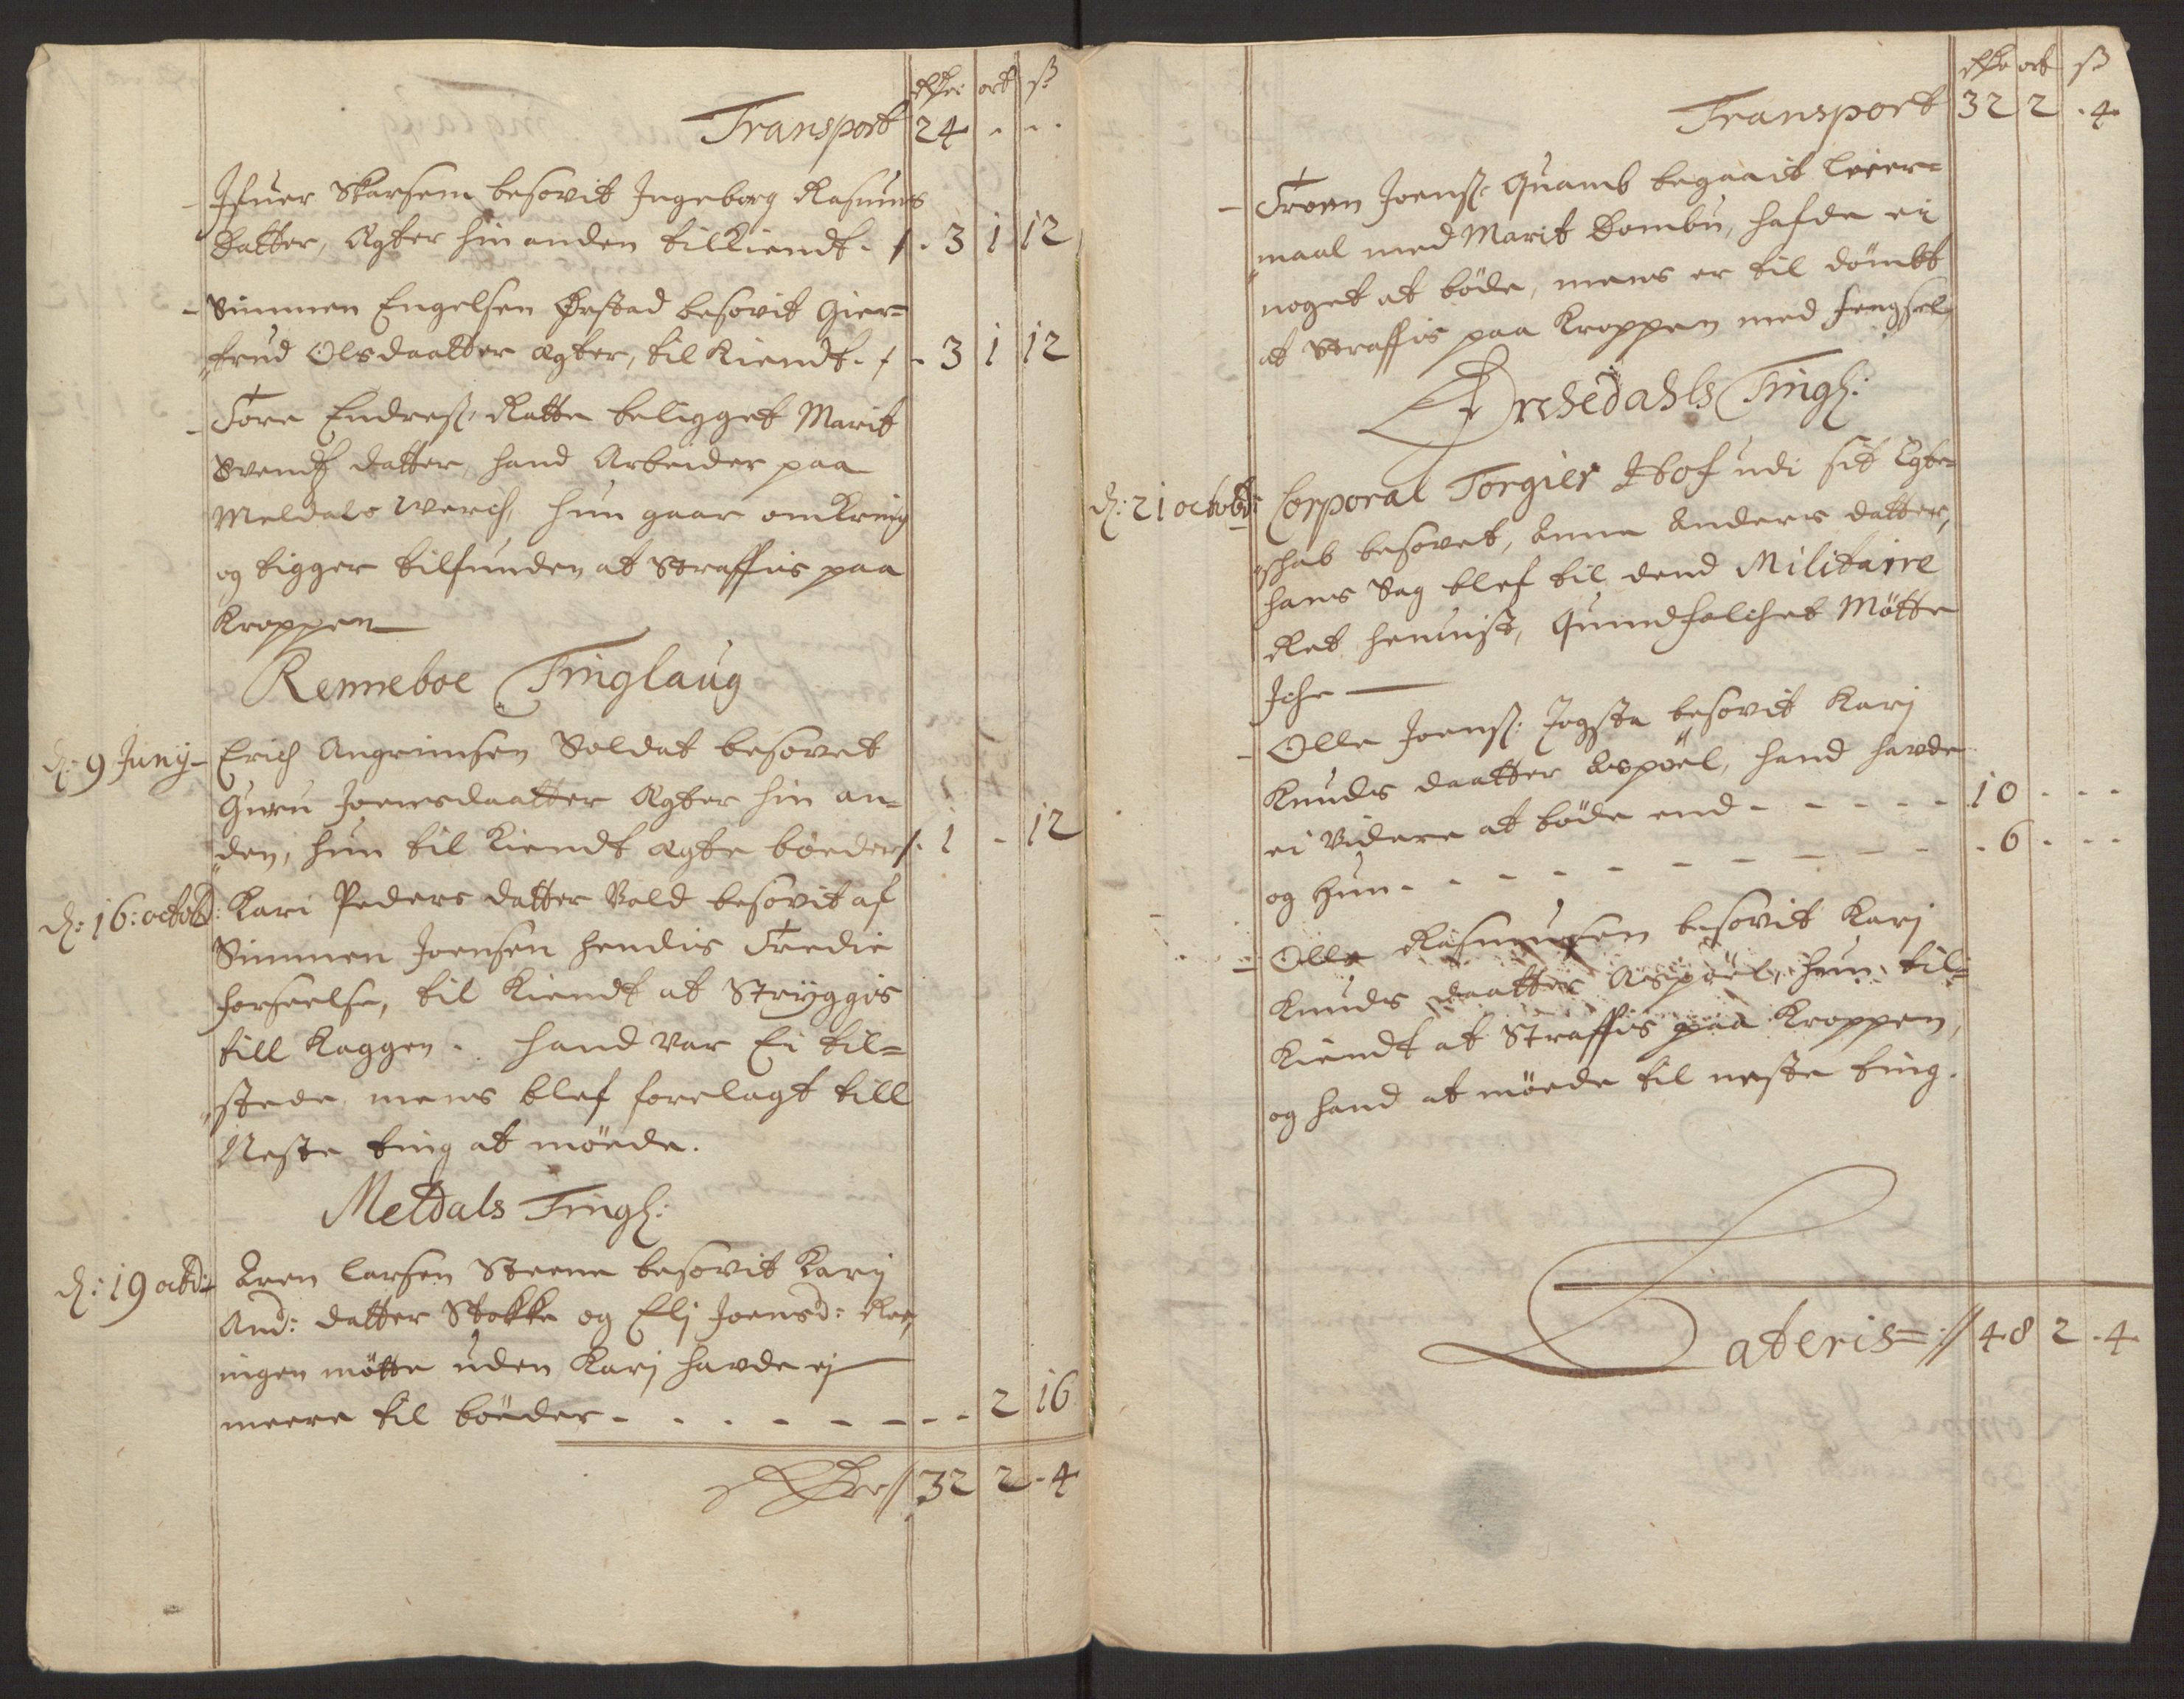 Rdr ort ß
Transport 24 - - -
- Ifuer Skarsem besovit Ingeborg Rasmus
Datter, Agter hin anden tilkiendt - /. 3 1 12
- Simmen Engelsen Ørstad besovit Gier=
trud Olsdaatter agter, til kiendt - / - 3 1 12
- Tore Endreß: Ratte beligget Marit
Svends datter, hand Arbeider paa
Meldals Werch, hun gaar omkring
og tigger tilfunden at Straffis paa
Kroppen
Renneboe Tinglaug
d: 9 Junij - Erich Angrimsen Soldat besovet
Guru Joensdaatter Agter hin an=
den, hun til kiendt agte böeder /. 1 - 12
d: 16: octobr: Kari Peders datter Vold besovit af
Simmen Joensen hendis Tredie
forseelse, til kiendt at Stryggis
till Kaggen. hand var Ei til=
stede mens blef forelagt till
Neste ting at möede.
Meldals Tingl:
d: 19 octbr: Aren Larsen Steene besovit Karij
And: datter Stokke og Elj Joensd: Ree,
ingen mötte uden Karj havde ej
meere til böeder - - - - - - - - 2 16
Rdr // 32 2 - 4
Rdr ort ß
Transport 32 2 - 4
- Troen Joenß: Quamb begaait leier=
maal med Marit Dombu, hafde ei
noget at böde, mens er til dömbt
at Straffis paa Kroppen med fengsel,
Orchedahls Tingl:
d: 21 octobr: Corporal Torgier Hof udi sit Egte=
schab besovet, Anna Anders datter,
hans Sag blef til dend Militaire
Ret henvist, Quindfolchet Mötte
Iche
- Olle Joenß: Jogsta besovit Karj
Knuds daatter Aspöel, hand havde
ei Videre at böde end - - - - - 10 - - -
og Hun - - - - - - - - - - 6 - - -
- Olle Rasmusen besovit Karj
Knuds daatter Aspöel, hun til=
kiendt at Straffis paa Kroppen,
og hand at möede til neste ting.
Lateris = // 48 2 - 4